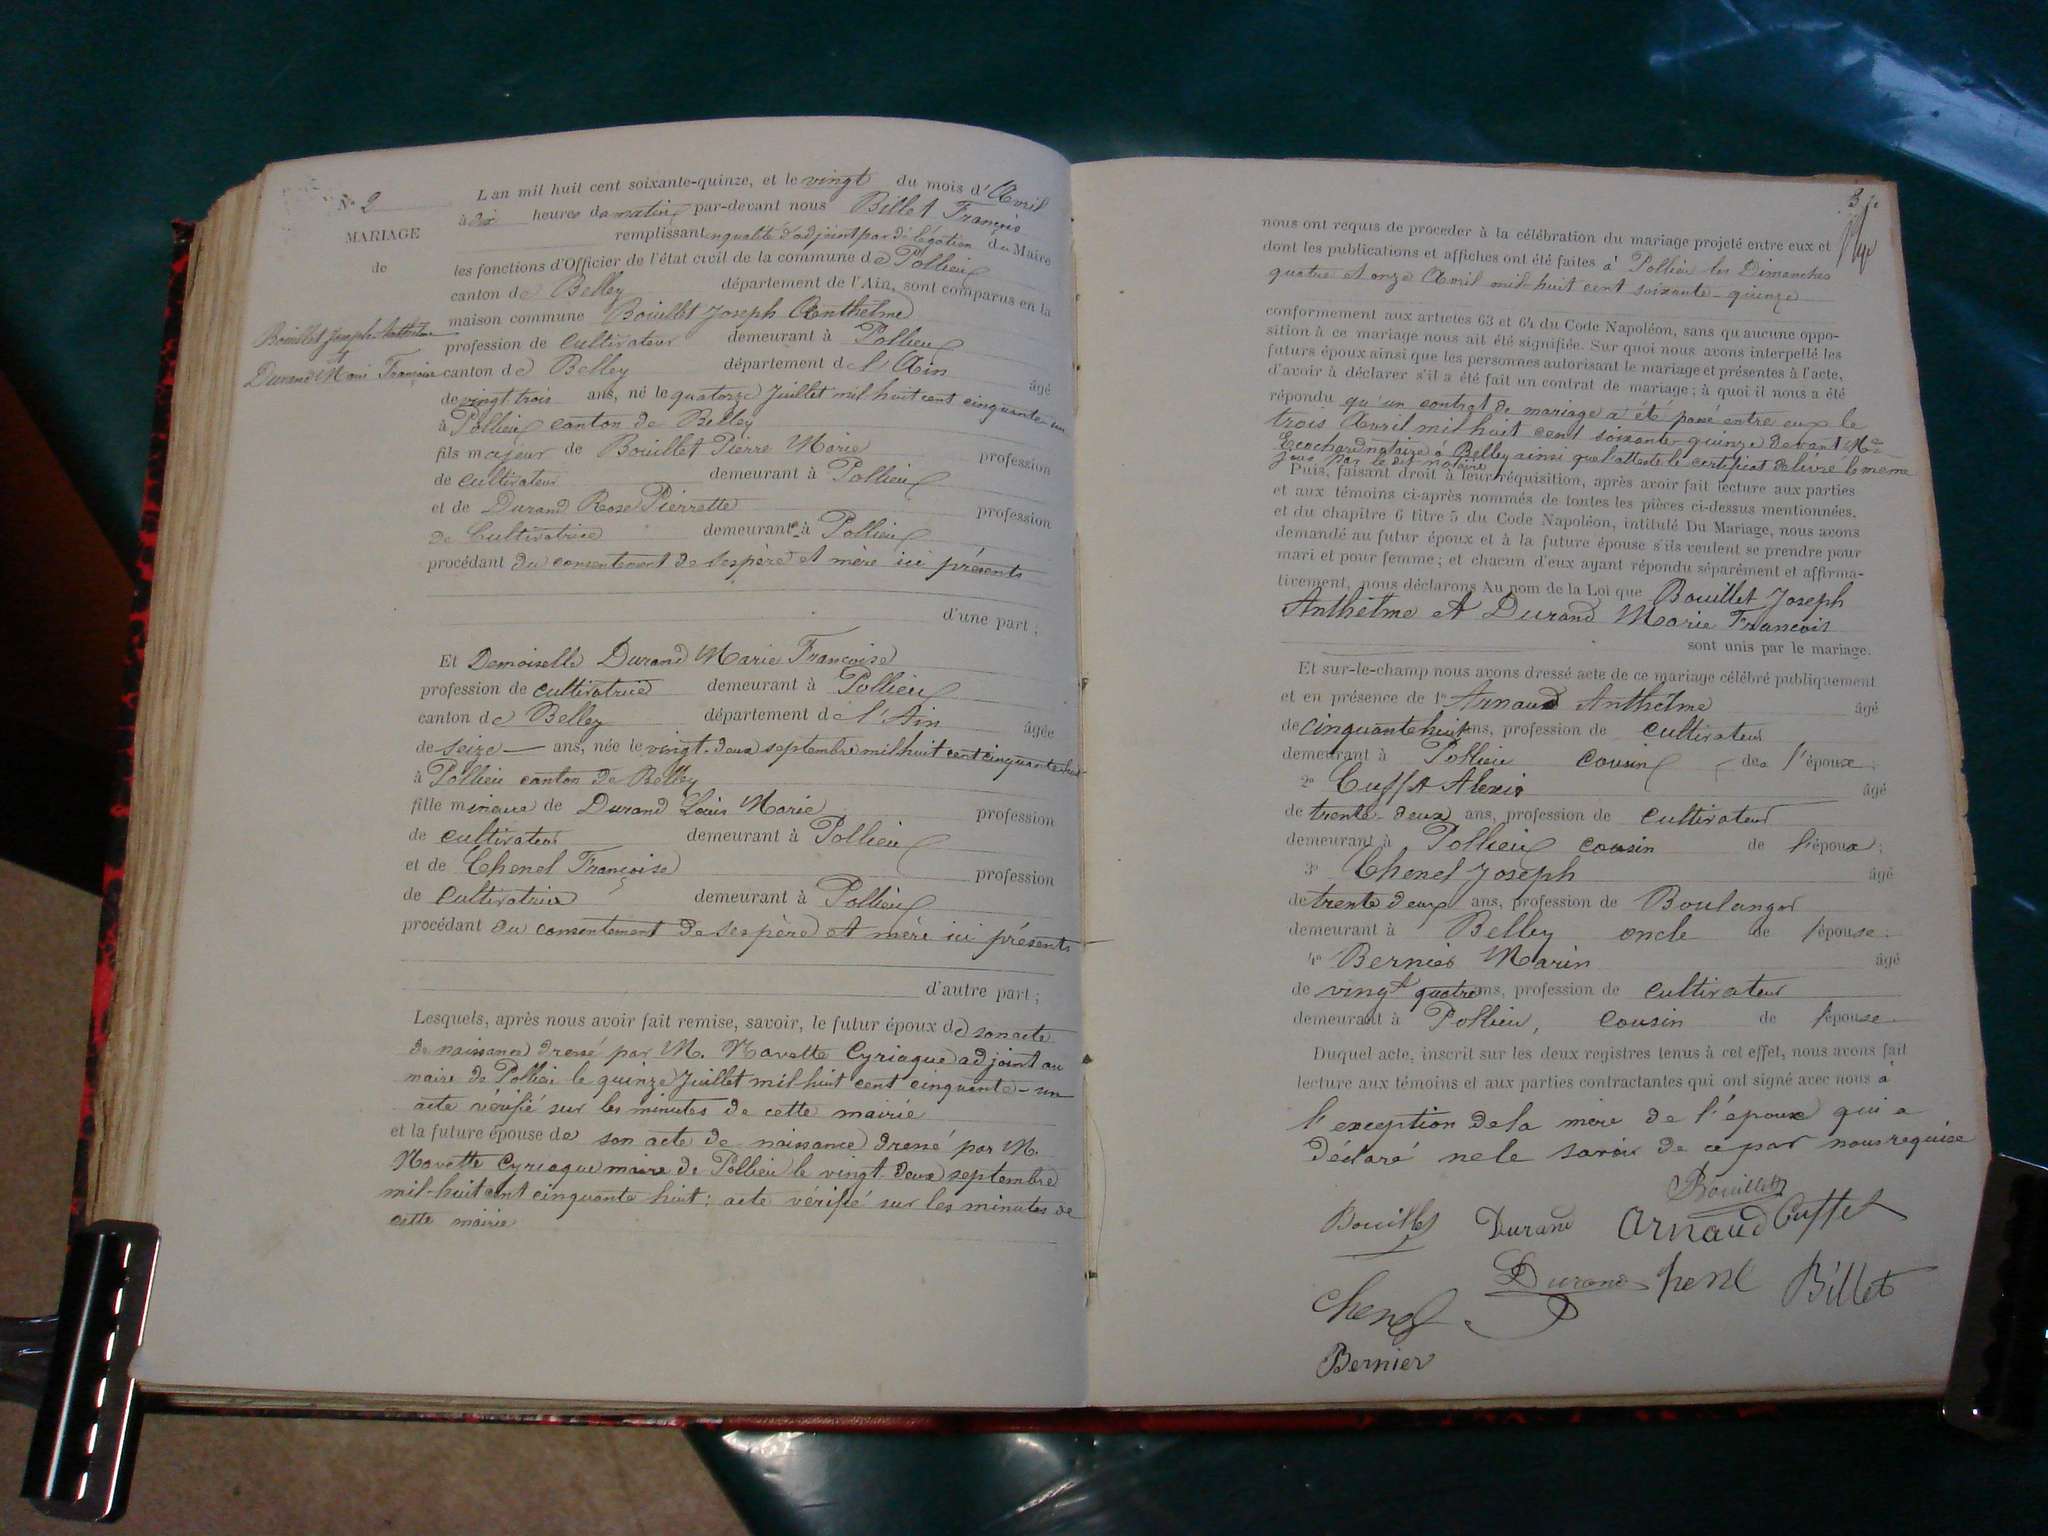 N° 2
MARIAGE
de
Bouillet Joseph Anthelme
et
Durand Marie Françoise
L'an mil huit cent soixante-quinze, et le vingt du mois d'Avril
à dix heures du matin par-devant nous Billet François
remplissant en qualité d'adjoint par délégation du Maire
les fonctions d'Officier de l'état civil de la commune de Pollieu
canton de Belley département de l'Ain, sont comparus en la
maison commune Bouillet Joseph Anthelme
profession de cultivateur demeurant à Pollieu
canton de Belley département de l'Ain âgé
de vingt trois ans, né le quatorze Juillet mil huit cent cinquante-un
à Pollieu canton de Belley
fils majeur de Bouillet Pierre Marie profession
de cultivateur demeurant à Pollieu
et de Durand Rose Pierrette profession
de Cultivatrice demeurante à Pollieu
procédant du consentement de ses père et mère ici présents
d'une part ;
Et Demoiselle Durand Marie Françoise
profession de cultivatrice demeurant à Pollieu
canton de Belley département de l'Ain âgée
de seize ans, née le vingt-deux septembre mil huit cent cinquante huit
à Pollieu canton de Belley
fille mineure de Durand Louis Marie profession
de cultivateur demeurant à Pollieu
et de Chenel Françoise profession
de cultivatrice demeurant à Pollieu
procédant du consentement de ses père et mère ici présents
d'autre part ;
Lesquels, après nous avoir fait remise, savoir, le futur époux de son acte
de naissance dressé par M. Navette Cyriaque adjoint au
maire de Pollieu le quinze Juillet mil huit cent cinquante-un
acte vérifié sur les minutes de cette mairie
et la future épouse de son acte de naissance dressé par M.
Navette Cyriaque maire de Pollieu le vingt-deux septembre
mil-huit cent cinquante huit ; acte vérifié sur les minutes de
cette mairie
3
nous ont requis de procéder à la célébration du mariage projeté entre eux et
dont les publications et affiches ont été faites à Pollieu les Dimanches
quatre et onze Avril mil-huit cent soixante-quinze
conformément aux articles 63 et 64 du Code Napoléon, sans qu'aucune oppo-
sition à ce mariage nous ait été signifiée. Sur quoi nous avons interpellé les
futurs époux ainsi que les personnes autorisant le mariage et présentes à l'acte,
d'avoir à déclarer s'il a été fait un contrat de mariage ; à quoi il nous a été
répondu qu'un contrat de mariage a été passé entre eux le
trois Avril mil huit cent soixante-quinze devant Me
Ecochard notaire à Belley ainsi que l'atteste le certificat délivré le même
jour par le dit notaire
Puis, faisant droit à leur réquisition, après avoir fait lecture aux parties
et aux témoins ci-après nommés de toutes les pièces ci-dessus mentionnées,
et du chapitre 6 titre 5 du Code Napoléon, intitulé Du Mariage, nous avons
demandé au futur époux et à la future épouse s'ils veulent se prendre pour
mari et pour femme ; et chacun d'eux ayant répondu séparément et affirma-
tivement, nous déclarons Au nom de la Loi que Bouillet Joseph
Anthelme et Durand Marie Francois
sont unis par le mariage.
Et sur-le-champ nous avons dressé acte de ce mariage célébré publiquement
et en présence de 1° Arnaud Anthelme âgé
de cinquante huit ans, profession de cultivateur
demeurant à Pollieu cousin de l'époux ;
2° Cuffet Alexis âgé
de trente-deux ans, profession de cultivateur
demeurant à Pollieu cousin de l'époux ;
3° Chenel Joseph âgé
de trente deux ans, profession de Boulanger
demeurant à Belley oncle de l'épouse
4° Bernier Marin âgé
de vingt quatre ans, profession de cultivateur
demeurant à Pollieu, cousin de l'épouse
Duquel acte, inscrit sur les deux registres tenus à cet effet, nous avons fait
lecture aux témoins et aux parties contractantes qui ont signé avec nous à
l'exception de la mère de l'époux qui a
déclaré ne le savoir de ce par nous requise
Bouillet
Bouillet Durand Arnaud Cuffet
Chenel Durand Billet
Bernier